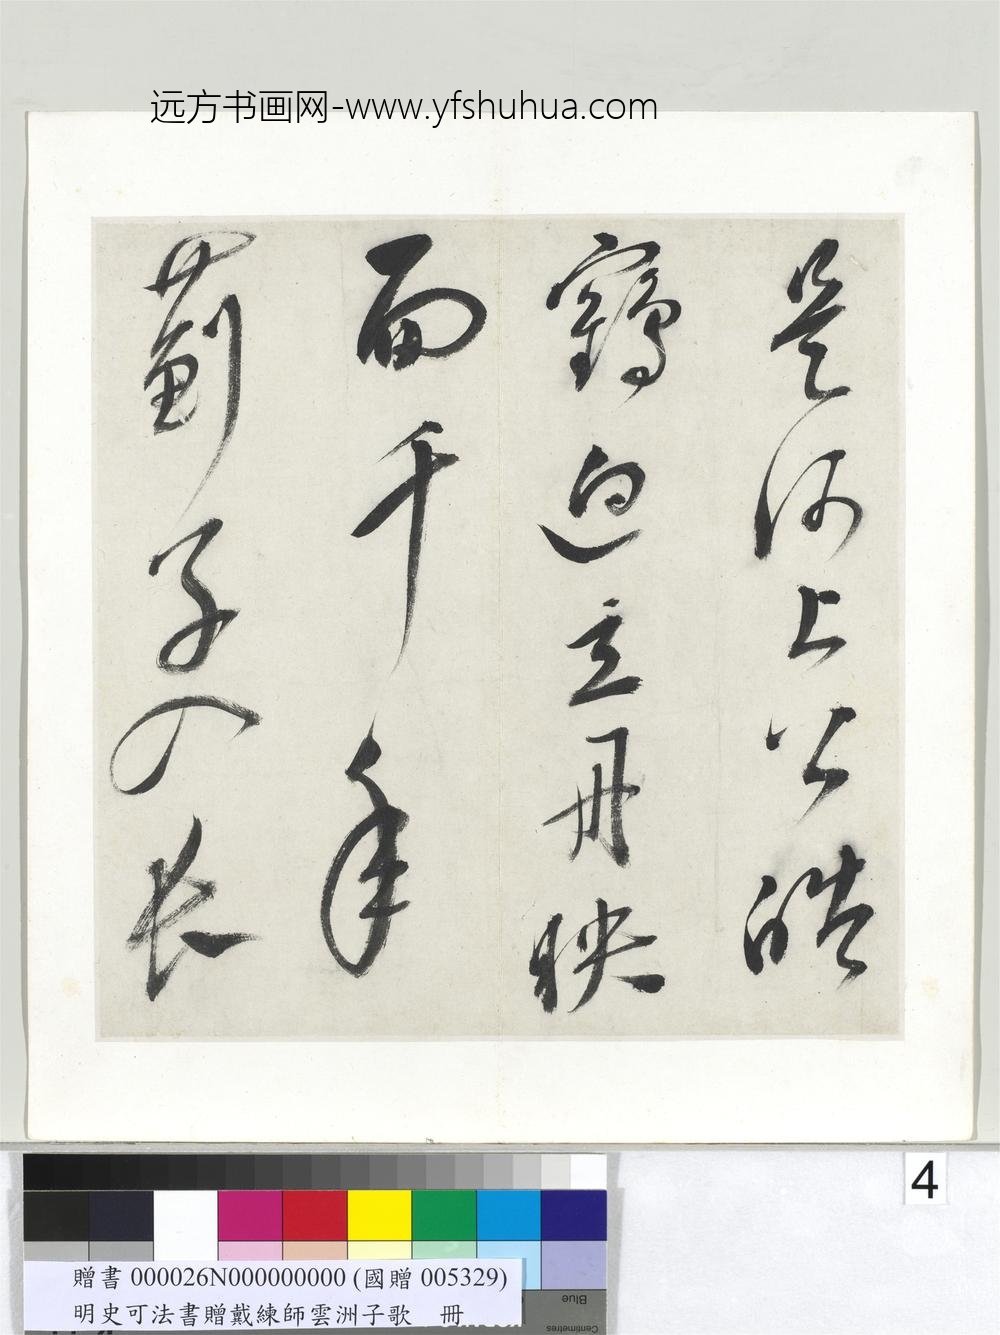 远方书画网-www.yfshuhua.com
是河上公皓
鶴迥立丹映
面千年
薊子入長
4
贈書 000026N000000000 (國贈 005329)
明史可法書贈戴練師雲洲子歌 冊
Blue
Centimetres